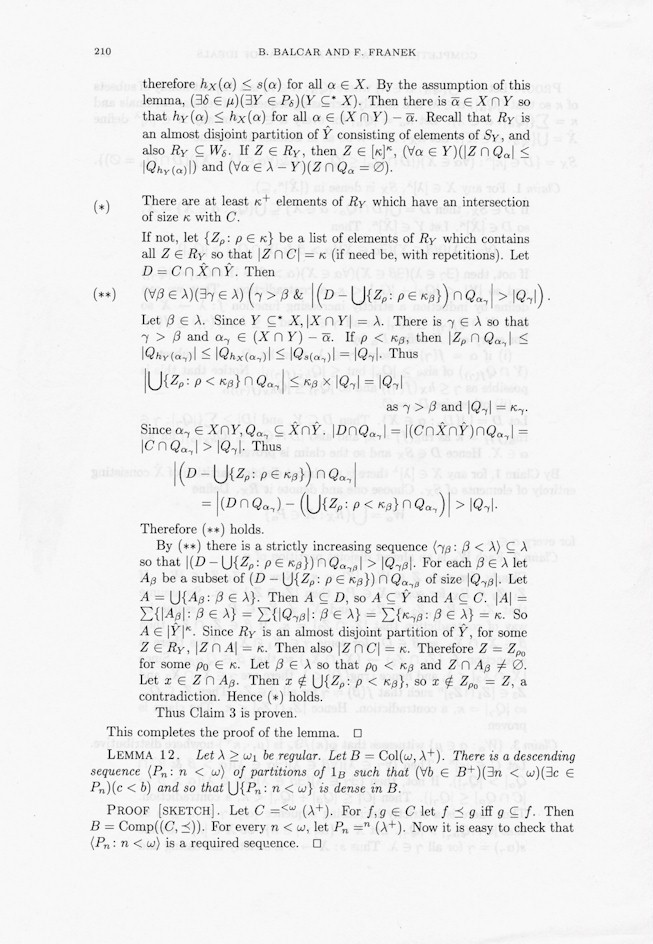 210 B. BALCAR AND F. FRANEK
therefore h_X(α) ≤ s(α) for all α ∈ X. By the assumption of this
lemma, (∃δ ∈ μ)(∃Y ∈ P_δ)(Y ⊆* X). Then there is α̅ ∈ X ∩ Y so
that h_Y(α) ≤ h_X(α) for all α ∈ (X ∩ Y) − α̅. Recall that R_Y is
an almost disjoint partition of Ŷ consisting of elements of S_Y, and
also R_Y ⊆ W_δ. If Z ∈ R_Y, then Z ∈ [κ]^κ, (∀α ∈ Y)(|Z ∩ Q_α| ≤
|Q_{h_Y(α)}|) and (∀α ∈ λ − Y)(Z ∩ Q_α = ∅).
(*) There are at least κ⁺ elements of R_Y which have an intersection
of size κ with C.
If not, let {Z_ρ: ρ ∈ κ} be a list of elements of R_Y which contains
all Z ∈ R_Y so that |Z ∩ C| = κ (if need be, with repetitions). Let
D = C ∩ X̂ ∩ Ŷ. Then
(**) (∀β ∈ λ)(∃γ ∈ λ) (γ > β & |(D − ⋃{Z_ρ: ρ ∈ κ_β}) ∩ Q_{α_γ}| > |Q_γ|).
Let β ∈ λ. Since Y ⊆* X, |X ∩ Y| = λ. There is γ ∈ λ so that
γ > β and α_γ ∈ (X ∩ Y) − α̅. If ρ < κ_β, then |Z_ρ ∩ Q_{α_γ}| ≤
|Q_{h_Y(α_γ)}| ≤ |Q_{h_X(α_γ)}| ≤ |Q_{s(α_γ)}| = |Q_γ|. Thus
|⋃{Z_ρ: ρ < κ_β} ∩ Q_{α_γ}| ≤ κ_β × |Q_γ| = |Q_γ|
as γ > β and |Q_γ| = κ_γ.
Since α_γ ∈ X∩Y, Q_{α_γ} ⊆ X̂∩Ŷ. |D∩Q_{α_γ}| = |(C∩X̂∩Ŷ)∩Q_{α_γ}| =
|C ∩ Q_{α_γ}| > |Q_γ|. Thus
|(D − ⋃{Z_ρ: ρ ∈ κ_β}) ∩ Q_{α_γ}|
= |(D ∩ Q_{α_γ}) − (⋃{Z_ρ: ρ < κ_β} ∩ Q_{α_γ})| > |Q_γ|.
Therefore (**) holds.
By (**) there is a strictly increasing sequence ⟨γ_β: β < λ⟩ ⊆ λ
so that |(D − ⋃{Z_ρ: ρ ∈ κ_β}) ∩ Q_{α_{γ_β}}| > |Q_{γ_β}|. For each β ∈ λ let
A_β be a subset of (D − ⋃{Z_ρ: ρ ∈ κ_β}) ∩ Q_{α_{γ_β}} of size |Q_{γ_β}|. Let
A = ⋃{A_β: β ∈ λ}. Then A ⊆ D, so A ⊆ Ŷ and A ⊆ C. |A| =
∑{|A_β|: β ∈ λ} = ∑{|Q_{γ_β}|: β ∈ λ} = ∑{κ_{γ_β}: β ∈ λ} = κ. So
A ∈ |Ŷ|^κ. Since R_Y is an almost disjoint partition of Ŷ, for some
Z ∈ R_Y, |Z ∩ A| = κ. Then also |Z ∩ C| = κ. Therefore Z = Z_{ρ₀}
for some ρ₀ ∈ κ. Let β ∈ λ so that ρ₀ < κ_β and Z ∩ A_β ≠ ∅.
Let x ∈ Z ∩ A_β. Then x ∉ ⋃{Z_ρ: ρ < κ_β}, so x ∉ Z_{ρ₀} = Z, a
contradiction. Hence (*) holds.
Thus Claim 3 is proven.
This completes the proof of the lemma. □
LEMMA 12. Let λ ≥ ω₁ be regular. Let B = Col(ω, λ⁺). There is a descending
sequence ⟨P_n: n < ω⟩ of partitions of 1_B such that (∀b ∈ B⁺)(∃n < ω)(∃c ∈
P_n)(c < b) and so that ⋃{P_n: n < ω} is dense in B.
PROOF [SKETCH]. Let C = ^{<ω}(λ⁺). For f, g ∈ C let f ⪯ g iff g ⊆ f. Then
B = Comp((C, ⪯)). For every n < ω, let P_n = ^n(λ⁺). Now it is easy to check that
⟨P_n: n < ω⟩ is a required sequence. □